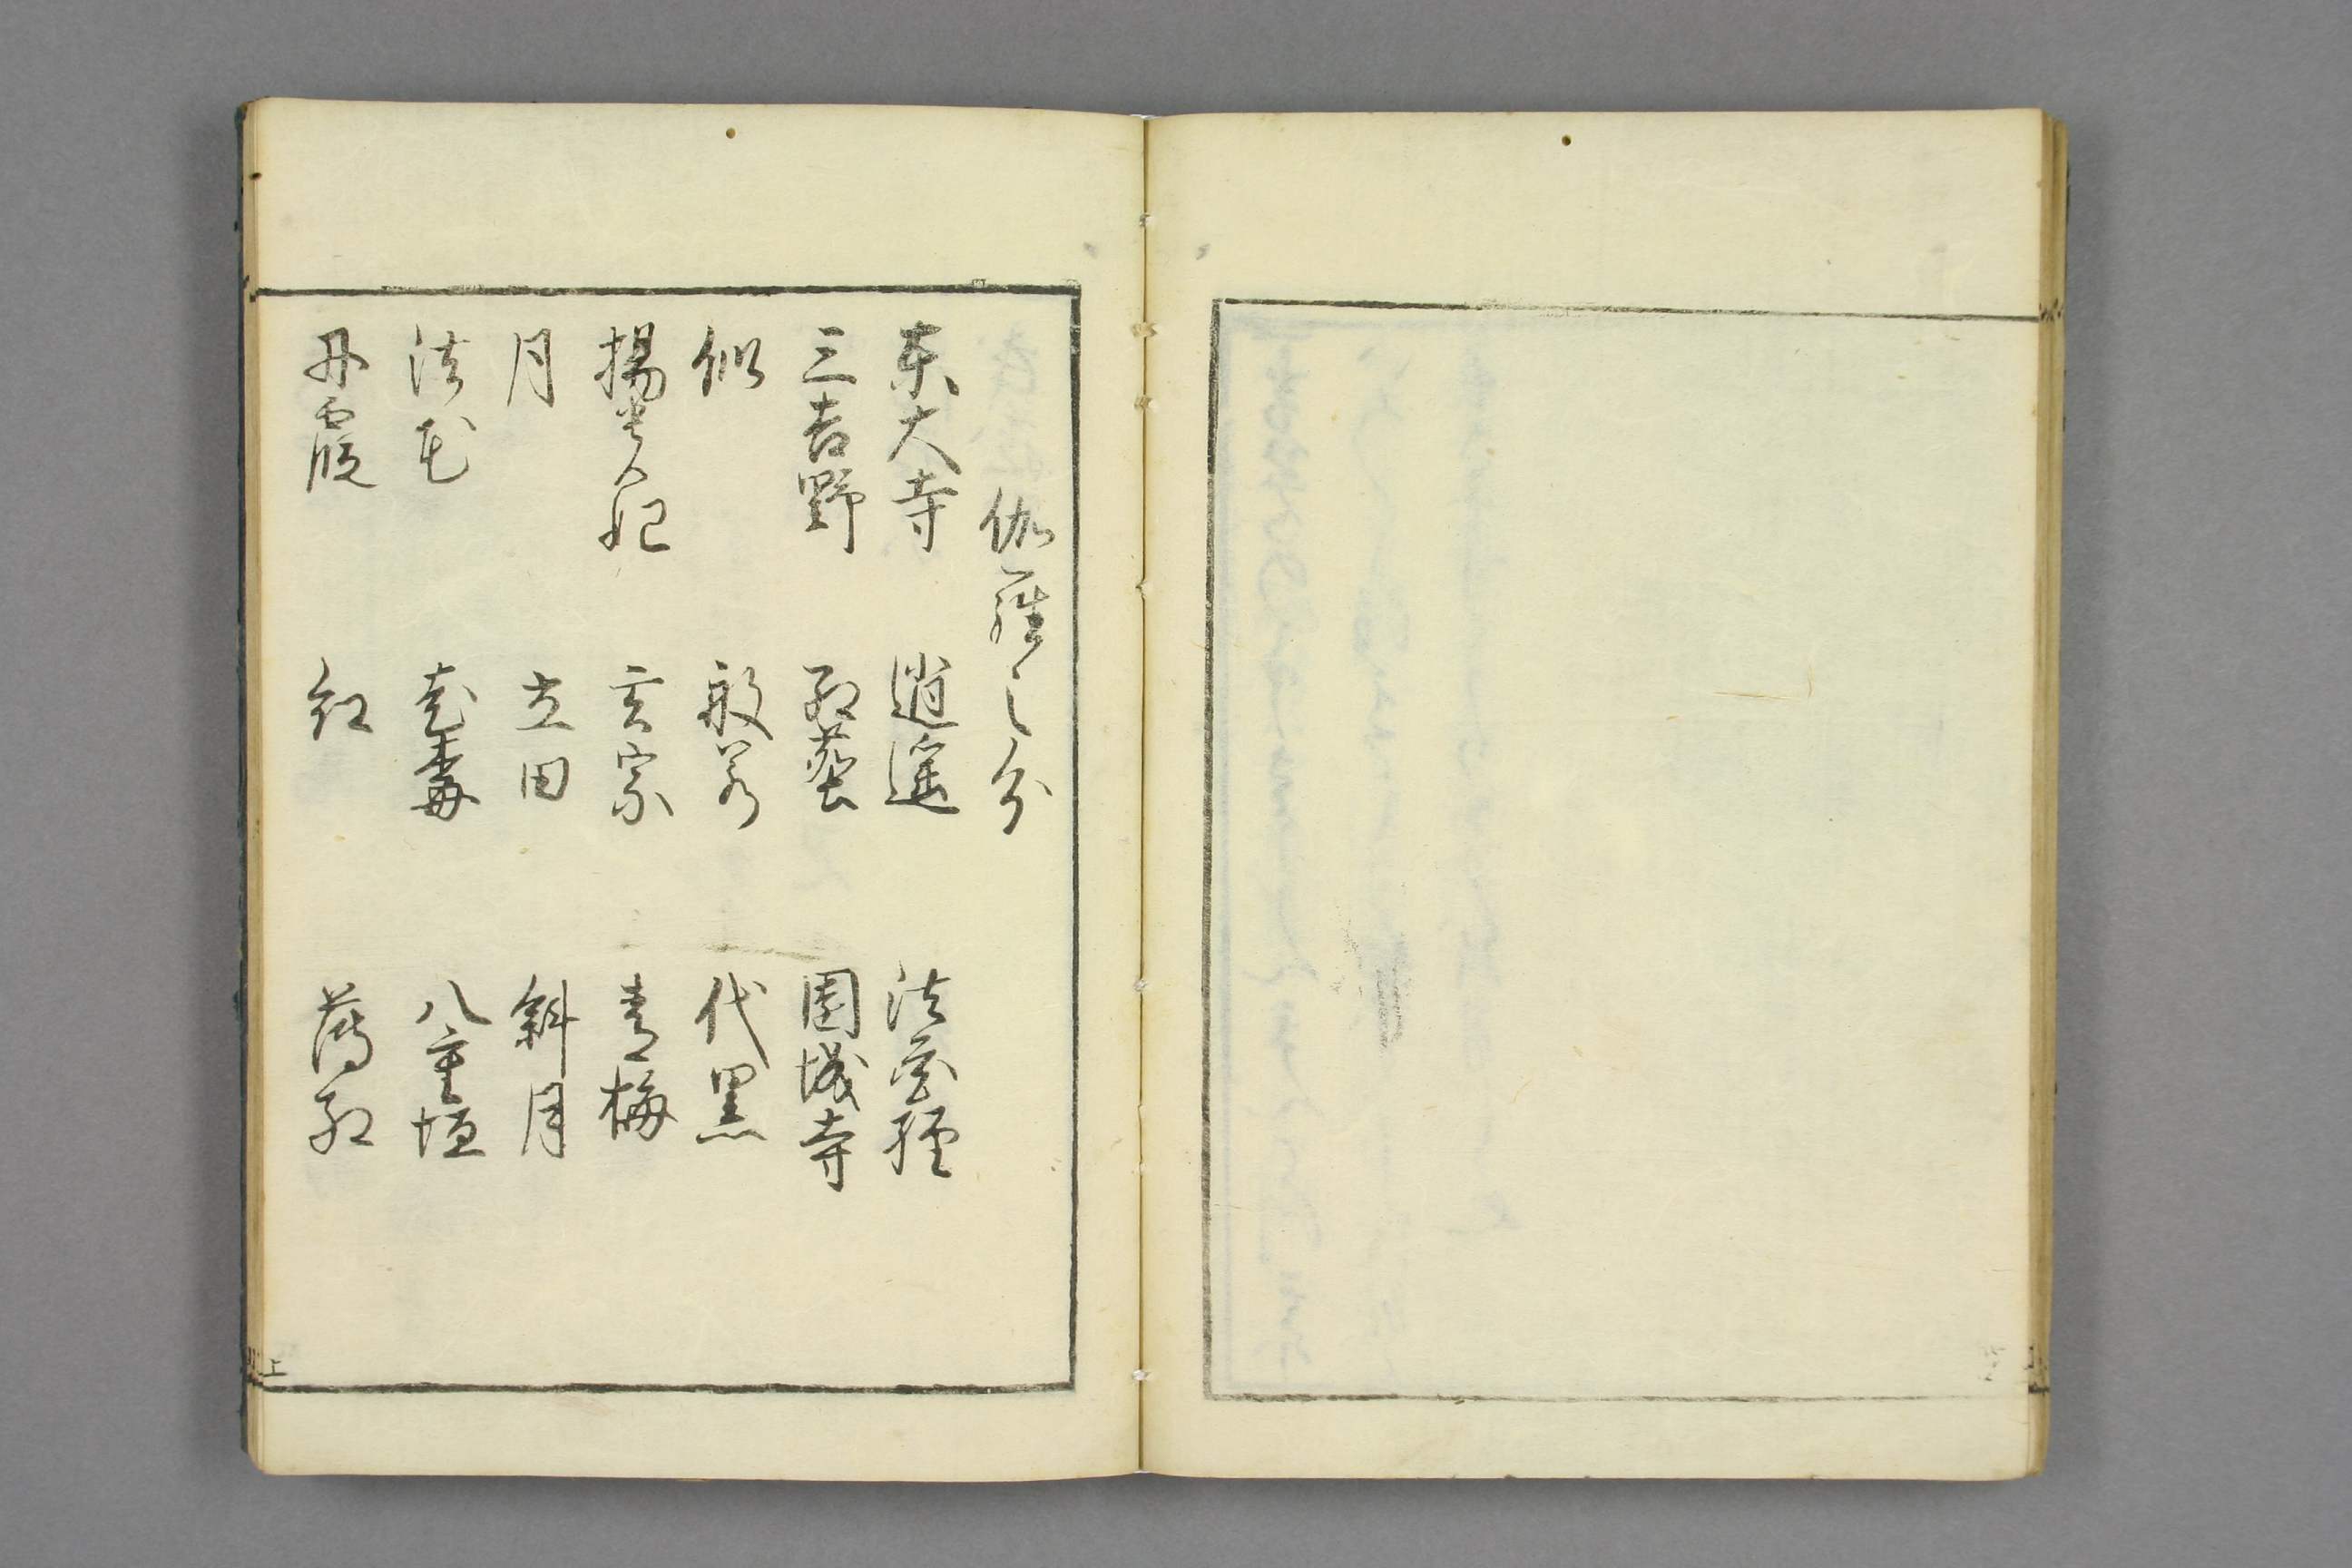 伽羅之分
東大寺　逍遥　法花経
三吉野　紅塵　園城寺
似　般若　代黒
揚貴妃　玄宗　青梅
月　立田　斜月
法花　花橘　八重垣
丹霞　紅　薄紅
上